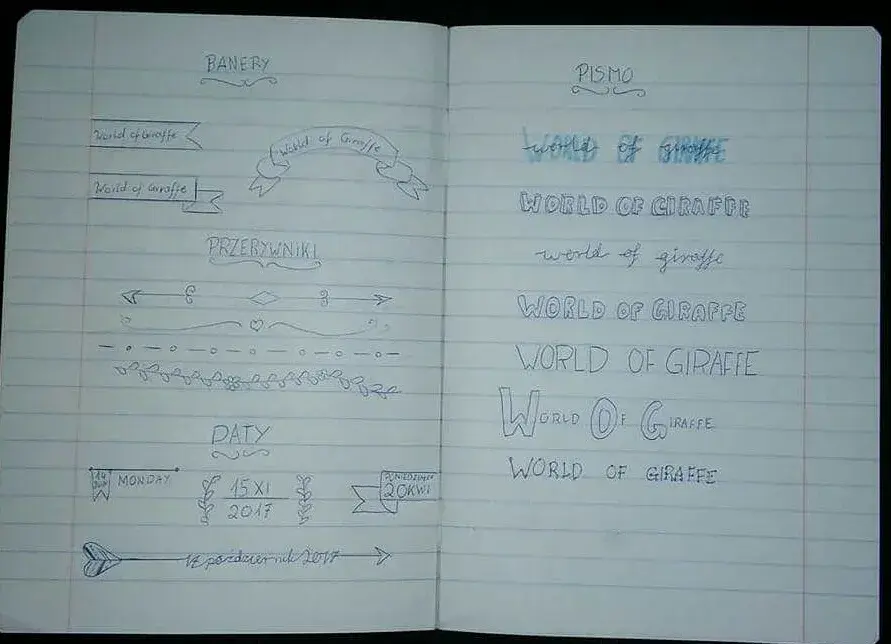 BANERY
World of Giraffe
World of Giraffe
World of Giraffe
PRZERYWNIKI
DATY
14
MONDAY
15 XI
2017
PONIEDZIAŁEK
20KWI
12 październik 2017
PISMO
WORLD OF GIRAFFE
world of giraffe
WORLD OF GIRAFFE
world of giraffe
WORLD OF GIRAFFE
WORLD OF GIRAFFE
WORLD OF GIRAFFE
WORLD OF GIRAFFE